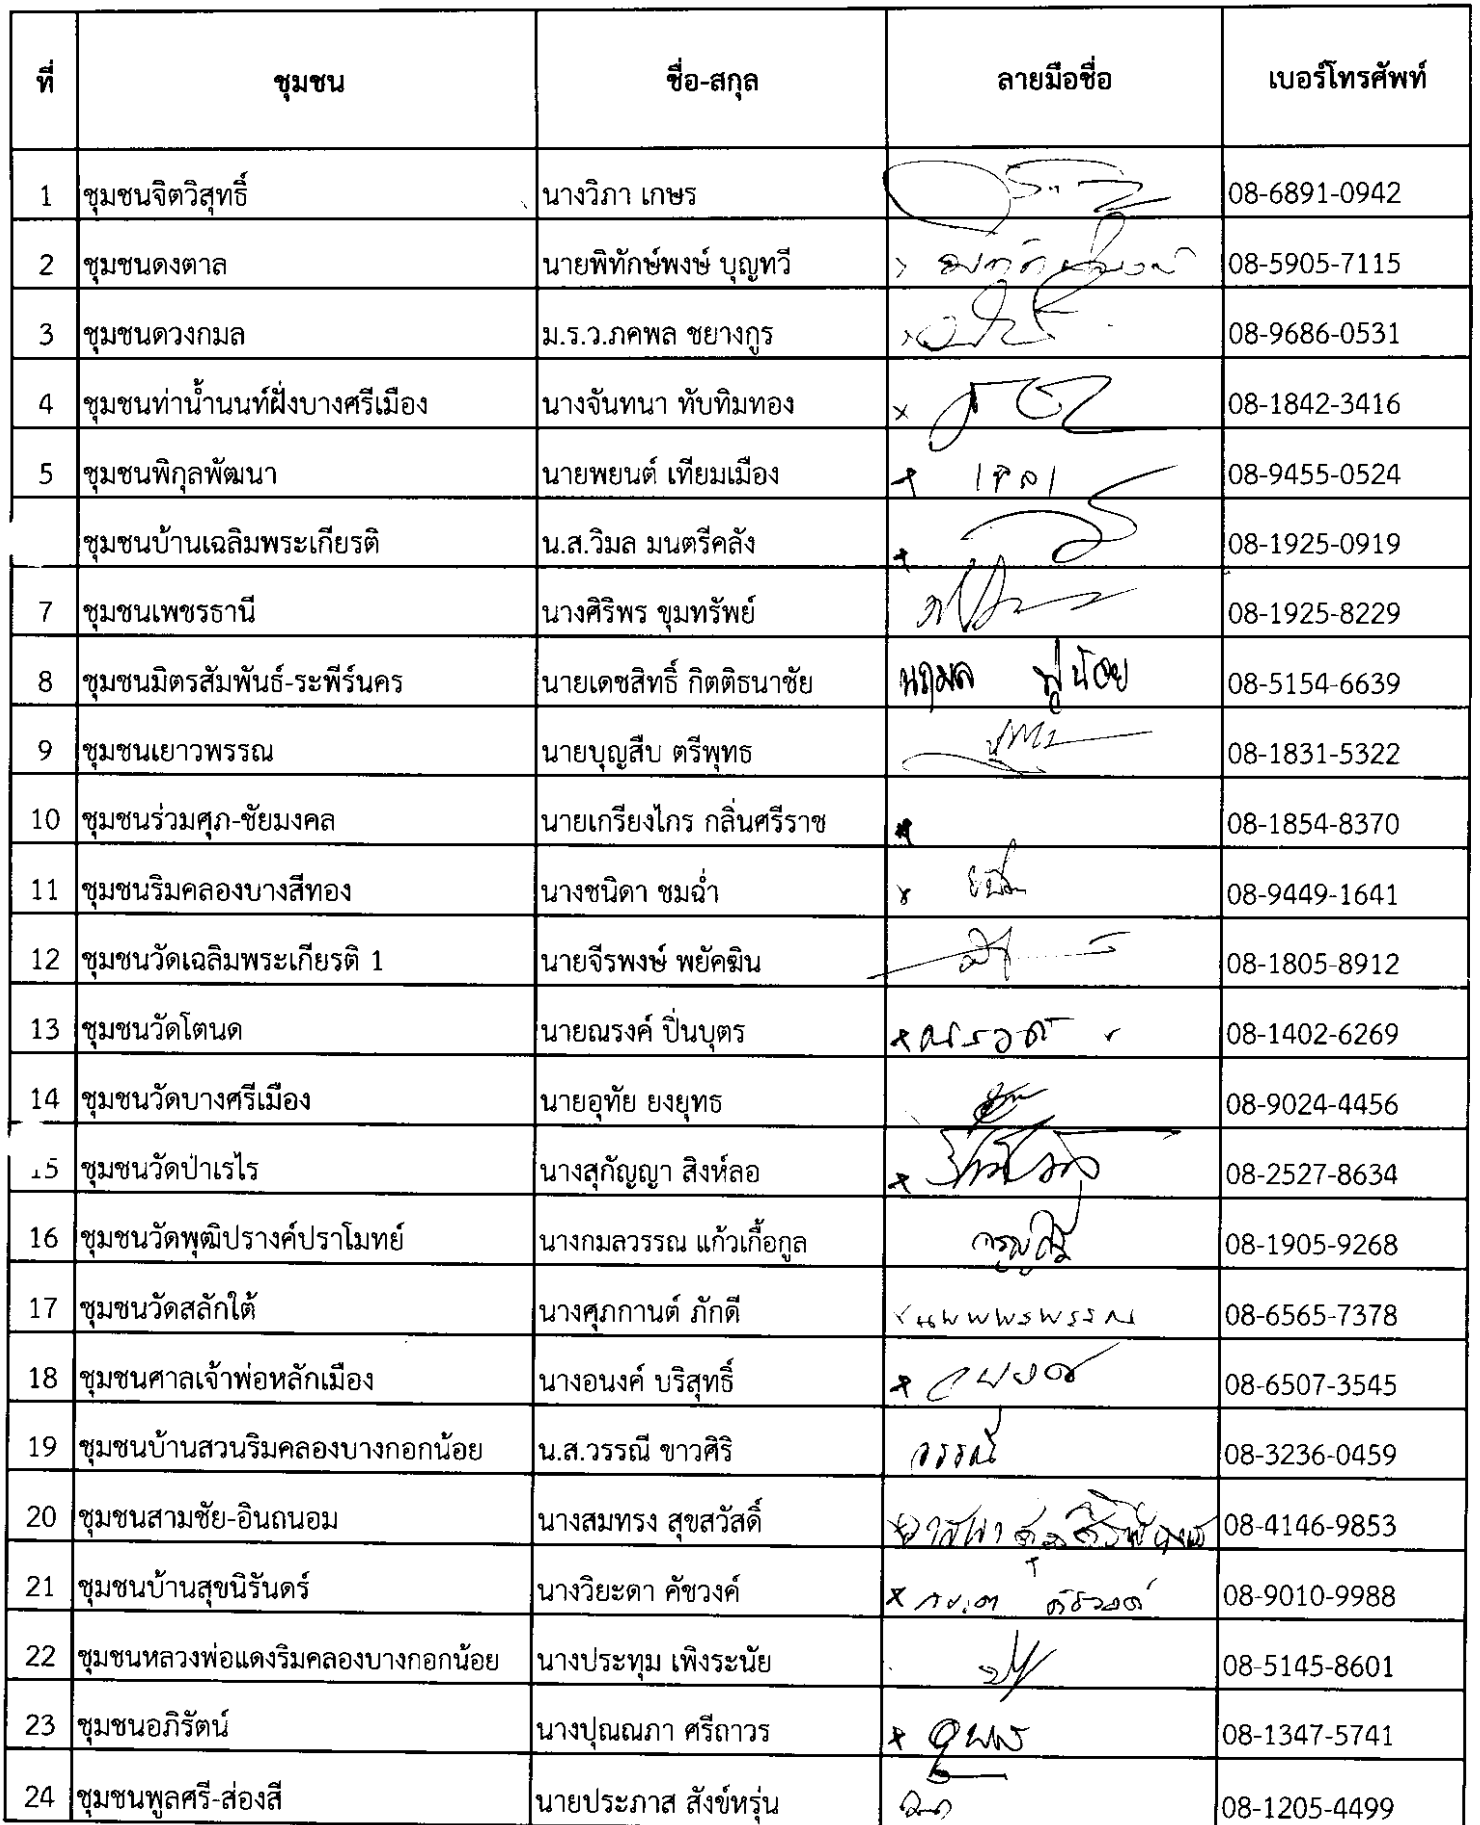 ที่ ชุมชน ชื่อ-สกุล ลายมือชื่อ เบอร์โทรศัพท์
1 ชุมชนจิตวิสุทธิ์ นางวิภา เกษร 08-6891-0942
2 ชุมชนดงตาล นายพิทักษ์พงษ์ บุญทวี 08-5905-7115
3 ชุมชนดวงกมล ม.ร.ว.ภคพล ชยางกูร 08-9686-0531
4 ชุมชนท่าน้ำนนท์ฝั่งบางศรีเมือง นางจันทนา ทับทิมทอง 08-1842-3416
5 ชุมชนพิกุลพัฒนา นายพยนต์ เทียมเมือง 08-9455-0524
ชุมชนบ้านเฉลิมพระเกียรติ น.ส.วิมล มนตรีคลัง 08-1925-0919
7 ชุมชนเพชรธานี นางศิริพร ขุมทรัพย์ 08-1925-8229
8 ชุมชนมิตรสัมพันธ์-ระพีร์นคร นายเดชสิทธิ์ กิตติธนาชัย นฤมล ฟูน้อย 08-5154-6639
9 ชุมชนเยาวพรรณ นายบุญสืบ ตรีพุทธ 08-1831-5322
10 ชุมชนร่วมศุภ-ชัยมงคล นายเกรียงไกร กลิ่นศรีราช 08-1854-8370
11 ชุมชนริมคลองบางสีทอง นางชนิดา ชมฉ่ำ 08-9449-1641
12 ชุมชนวัดเฉลิมพระเกียรติ 1 นายจีรพงษ์ พยัคฆิน 08-1805-8912
13 ชุมชนวัดโตนด นายณรงค์ ปิ่นบุตร 08-1402-6269
14 ชุมชนวัดบางศรีเมือง นายอุทัย ยงยุทธ 08-9024-4456
15 ชุมชนวัดป่าเรไร นางสุกัญญา สิงห์ลอ 08-2527-8634
16 ชุมชนวัดพุฒิปรางค์ปราโมทย์ นางกมลวรรณ แก้วเกื้อกูล 08-1905-9268
17 ชุมชนวัดสลักใต้ นางศุภกานต์ ภักดี 08-6565-7378
18 ชุมชนศาลเจ้าพ่อหลักเมือง นางอนงค์ บริสุทธิ์ 08-6507-3545
19 ชุมชนบ้านสวนริมคลองบางกอกน้อย น.ส.วรรณี ขาวศิริ วรรณี 08-3236-0459
20 ชุมชนสามชัย-อินถนอม นางสมทรง สุขสวัสดิ์ 08-4146-9853
21 ชุมชนบ้านสุขนิรันดร์ นางวิยะดา คัชวงค์ 08-9010-9988
22 ชุมชนหลวงพ่อแดงริมคลองบางกอกน้อย นางประทุม เพิงระนัย 08-5145-8601
23 ชุมชนอภิรัตน์ นางปุณณภา ศรีถาวร 08-1347-5741
24 ชุมชนพูลศรี-ส่องสี นายประภาส สังข์หรุ่น 08-1205-4499